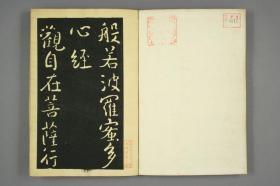 般若波羅蜜多
心經
觀自在菩薩行